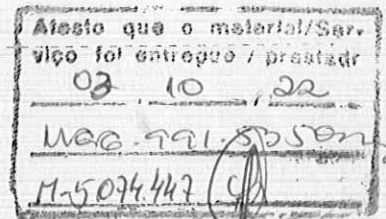 Atesto que o material/Ser-
viço foi entregue / prestadr
03 10 22
M-5074.447